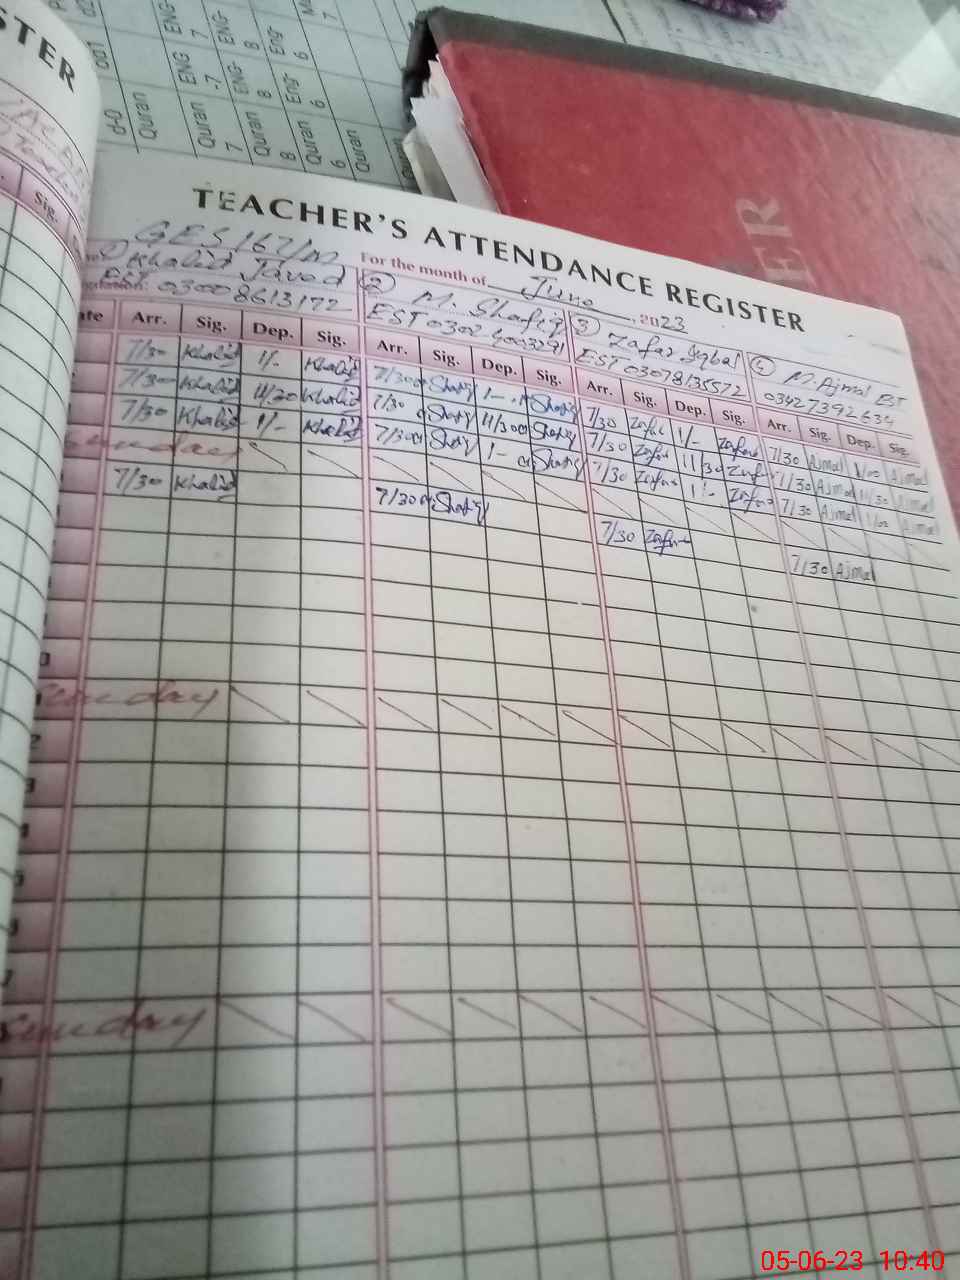 STER
d-0 001
Quran ENG ENG-
Quran -7 7
7 ENG- ENG-
Quran 8 8
8 Eng- Eng
Quran 6 6
6
Quran
TEACHER'S ATTENDANCE REGISTER
GES 167/M
For the month of June, 2023
① Khalid Javed EST
03008613172
② M. Shafiq
EST
③ Zafar Iqbal
EST 03078135572
④ M. Ajmal EST
03427392634
Arr. Sig. Dep. Sig. Arr. Sig. Dep. Sig. Arr. Sig. Dep. Sig. Arr. Sig. Dep. Sig.
7/30 Khalid 1/- Khalid 7/30 Shafiq 1- Shafiq 7/30 Zafar 1/- Zafar 7/30 Ajmal 1/00 Ajmal
7/30 Khalid 11/20 Khalid 7/30 Shafiq 11/30 Shafiq 7/30 Zafar 11/30 Zafar 7/30 Ajmal 11/30 Ajmal
7/30 Khalid 1/- Khalid 7/30 Shafiq 1- Shafiq 7/30 Zafar 1/- Zafar 7/30 Ajmal 1/00 Ajmal
Sunday
7/30 Khalid 7/30 Shafiq 7/30 Zafar 7/30 Ajmal
Sunday
Sunday
05-06-23 10:40